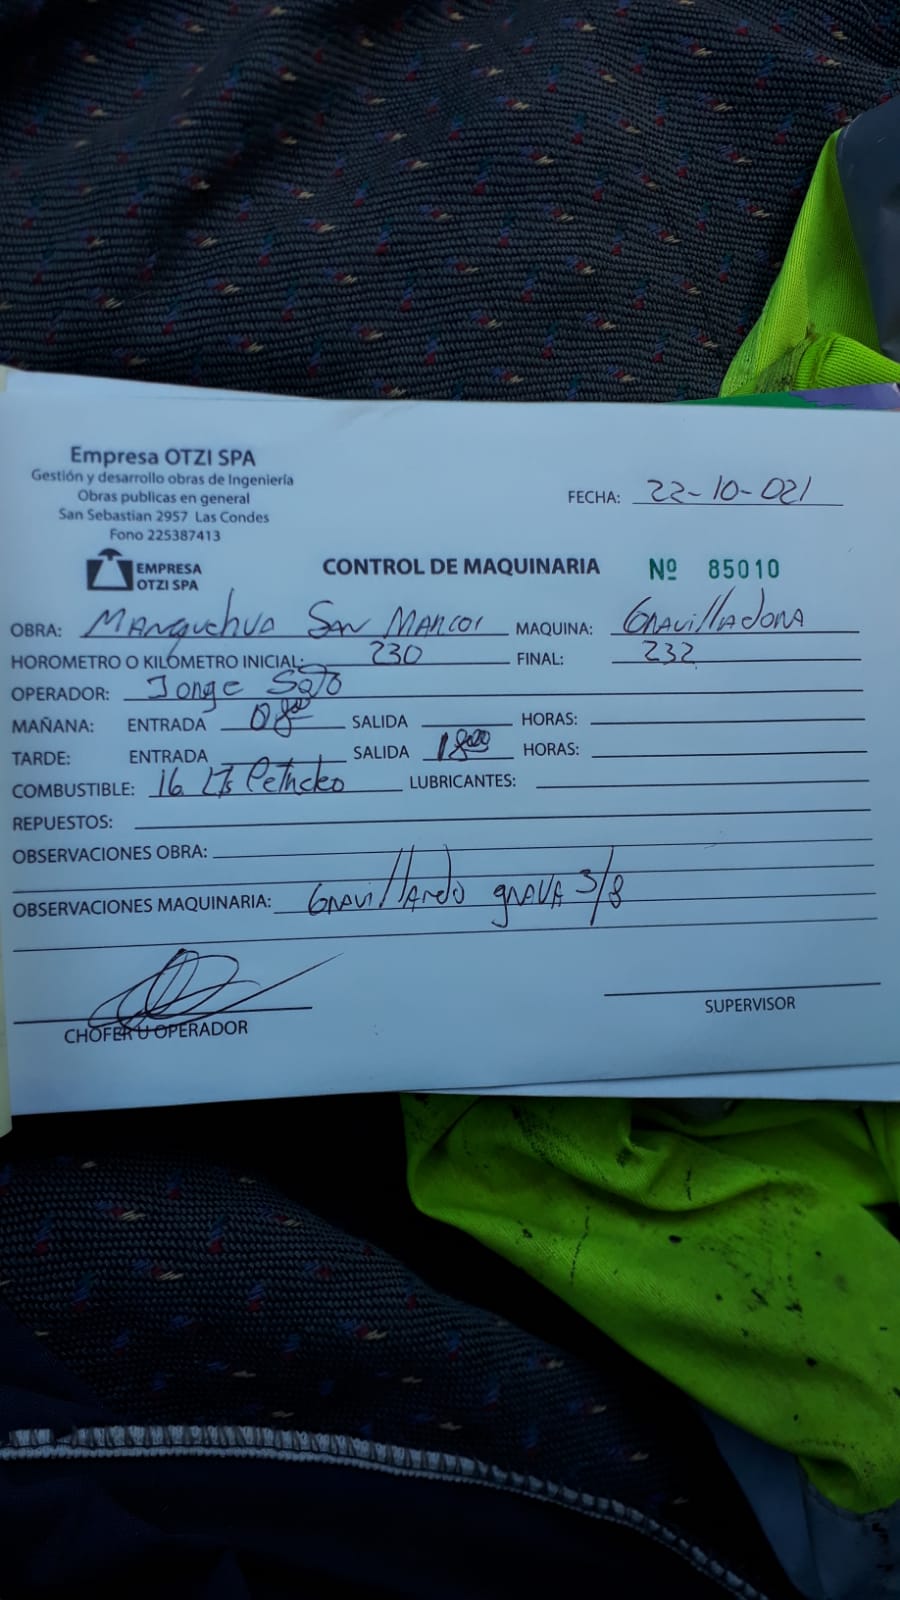 Empresa OTZI SPA
Gestión y desarrollo obras de Ingeniería
Obras publicas en general
San Sebastian 2957 Las Condes
Fono 225387413
EMPRESA
OTZI SPA
FECHA: 22-10-021
CONTROL DE MAQUINARIA Nº 85010
OBRA: Manquehua San Marcos MAQUINA: Gravilladora
HOROMETRO O KILÓMETRO INICIAL: 230 FINAL: 232
OPERADOR: Jorge Soto
MAÑANA: ENTRADA 08:00 SALIDA HORAS:
TARDE: ENTRADA SALIDA 18:00 HORAS:
COMBUSTIBLE: 16 Lts Petroleo LUBRICANTES:
REPUESTOS:
OBSERVACIONES OBRA:
OBSERVACIONES MAQUINARIA: Gravillando grava 3/8
CHOFER U OPERADOR
SUPERVISOR